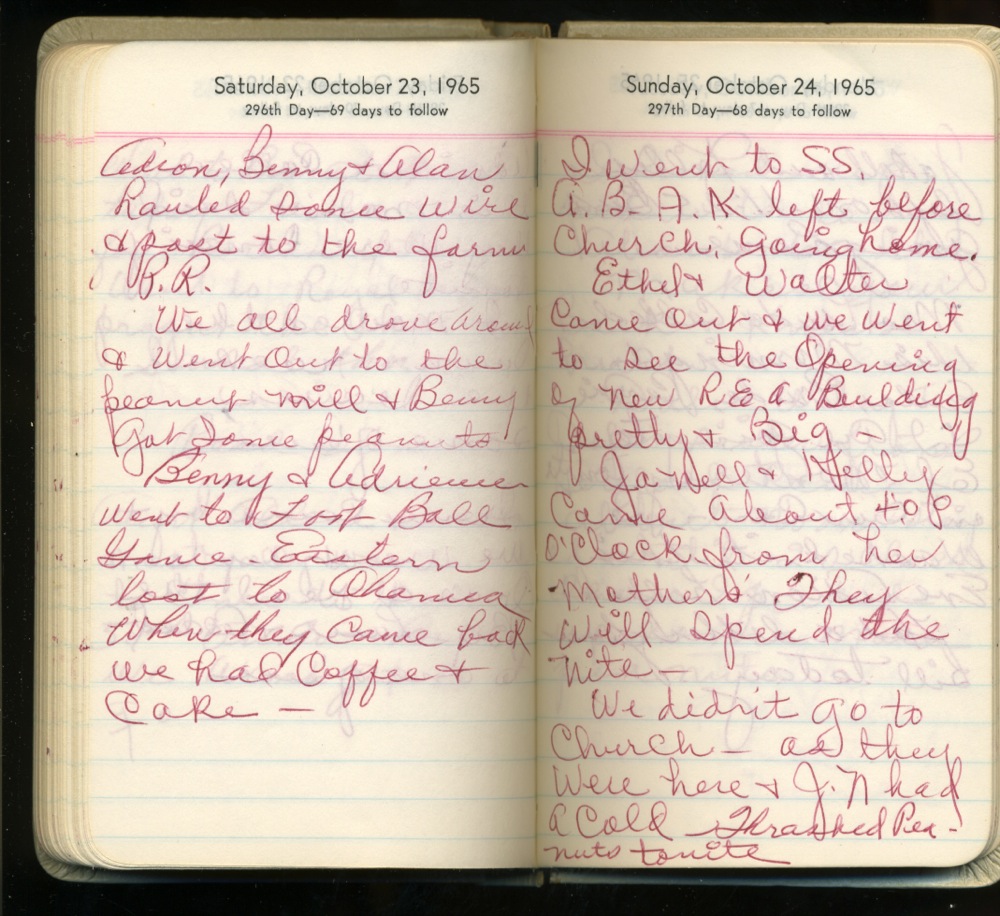 Saturday, October 23, 1965
296th Day—69 days to follow
Adron, Benny & Alan
Hauled some wire
& post to the farm
B.R.
We all drove around
& Went Out to the
peanut mill & Benny
Got Some peanuts
Benny & Adrienne
went to Foot Ball
Game. Eastern
lost to
When they Came back
we had Coffee &
Cake —
Sunday, October 24, 1965
297th Day—68 days to follow
I went to SS.
A. B. A. K left before
Church, Going home.
Ethel & Walter
Came Out & we Went
to see the Opening
of new R E A Building
pretty & Big —
Ja Nell & Helly
Came About 4:00
O'Clock from her
Mothers. They
will spend the
nite —
We didn't go to
Church — as they
Were here & J. N had
a Cold — Thrashed Pea-
nuts tonite